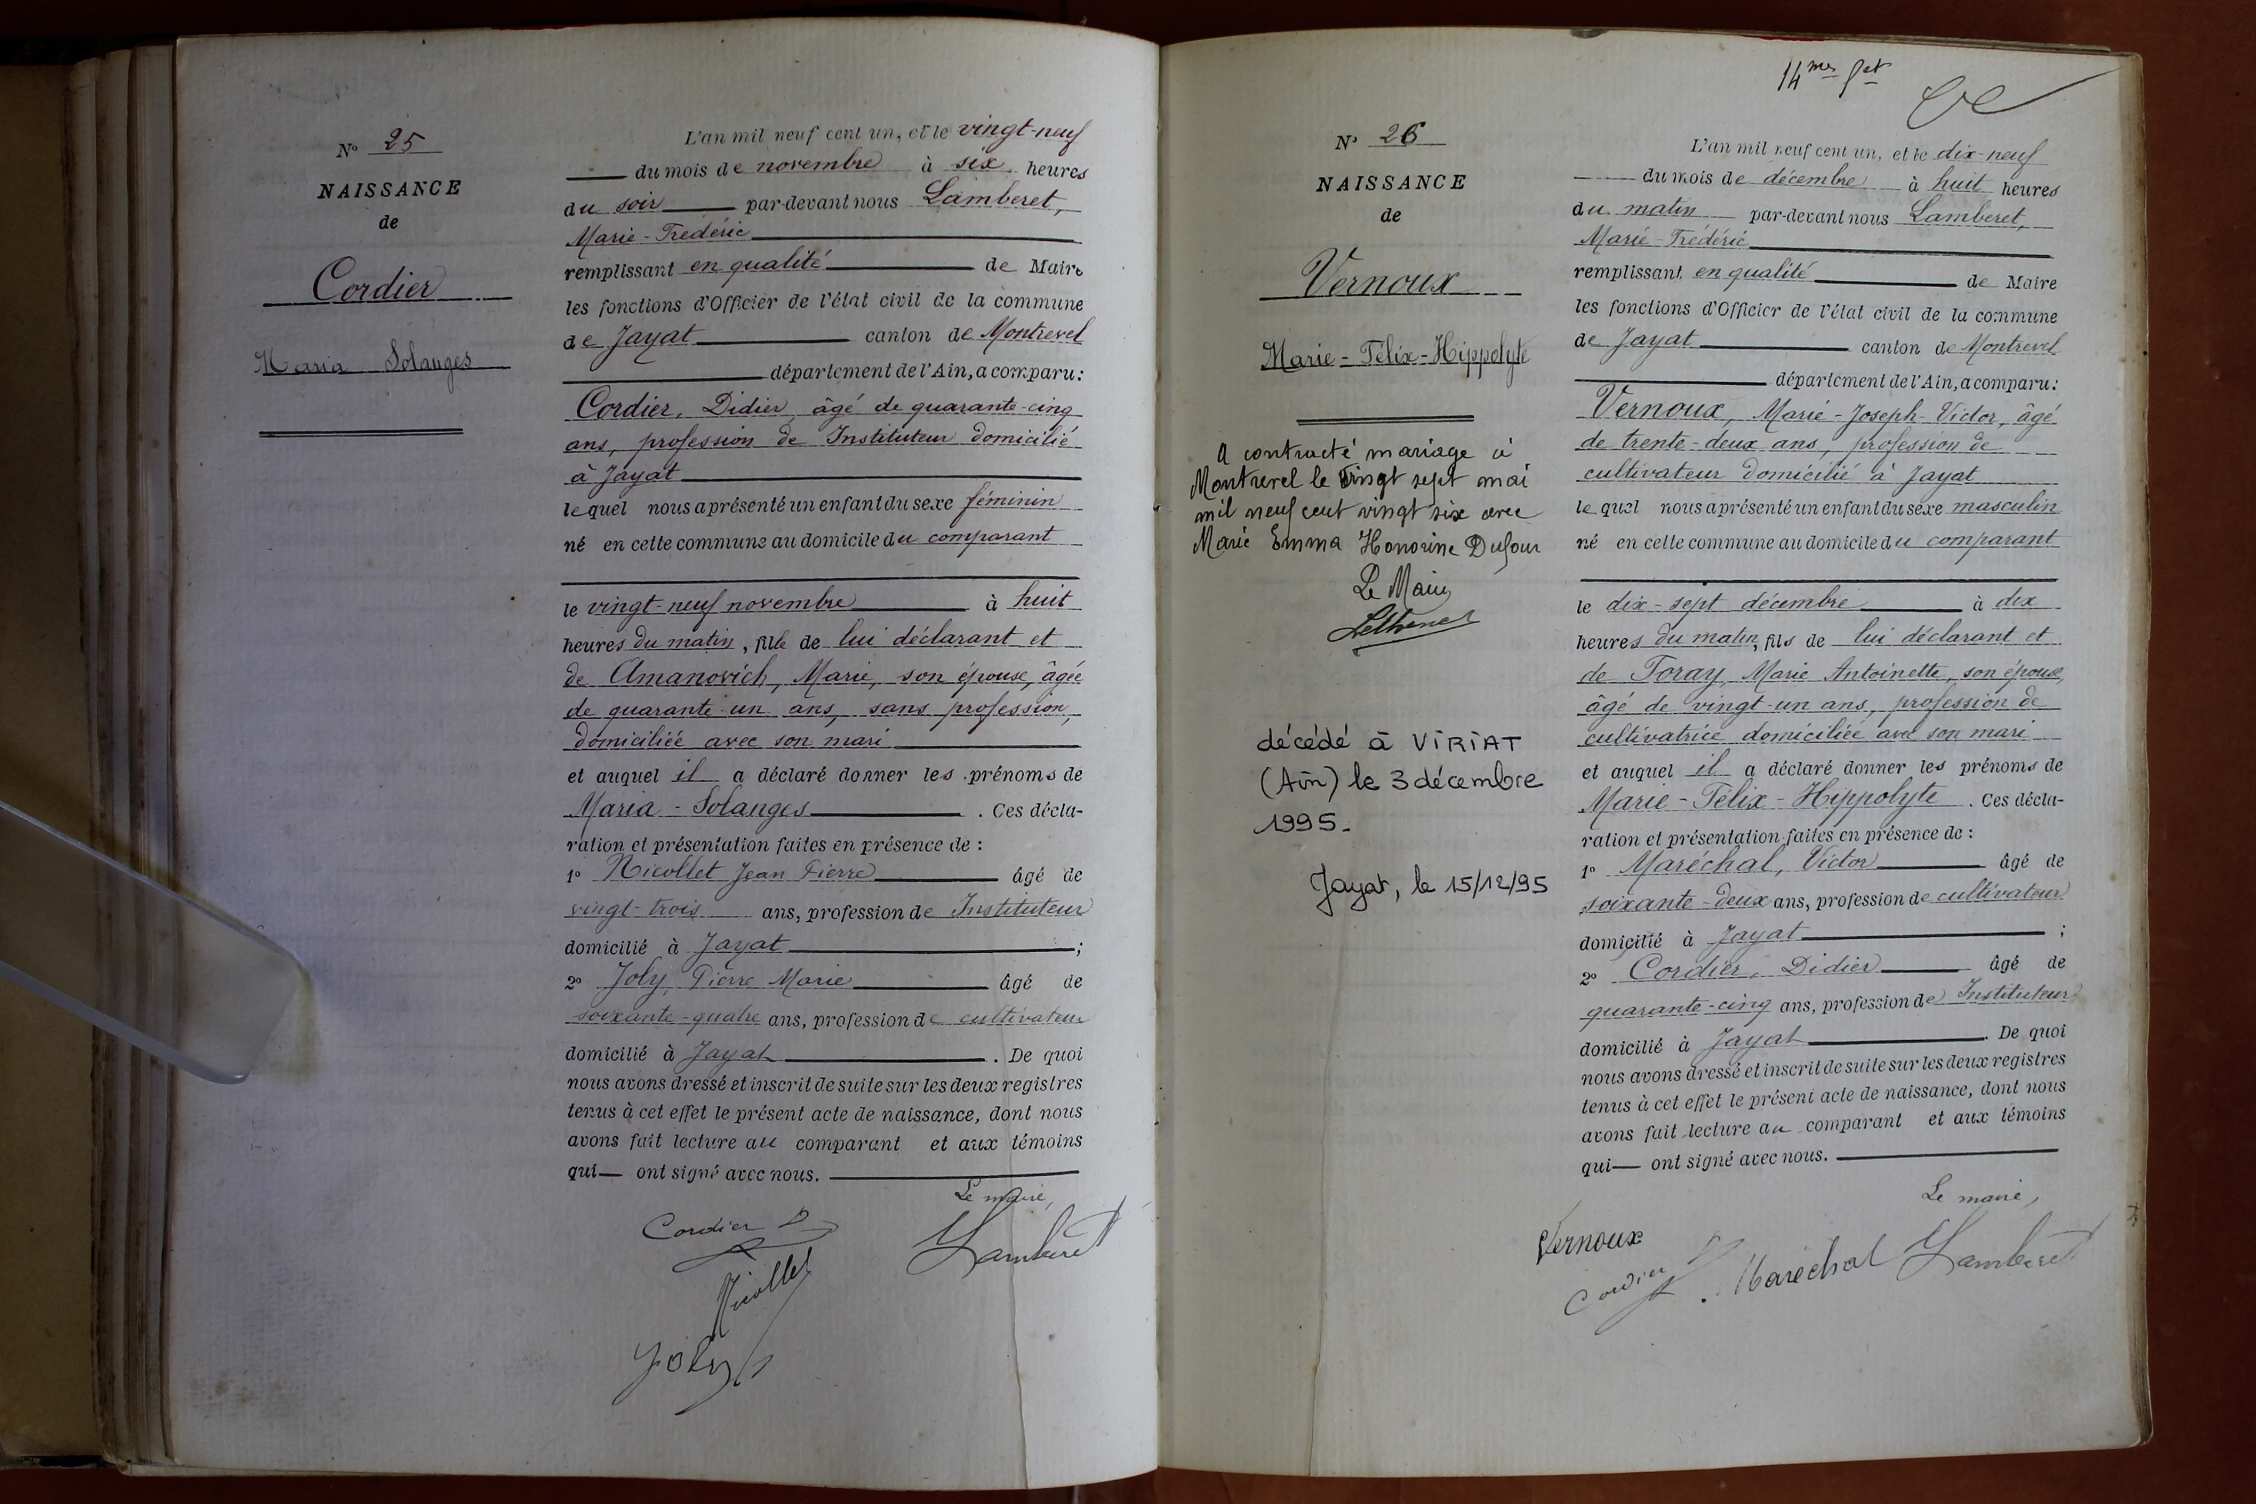 N° 25
NAISSANCE
de
Cordier
Maria Solanges
L'an mil neuf cent un, et le vingt-neuf
du mois de novembre à six heures
du soir par-devant nous Lamberet,
Marie-Frédéric
remplissant en qualité de Maire
les fonctions d'Officier de l'état civil de la commune
de Jayat canton de Montrevel
département de l'Ain, a comparu :
Cordier, Didier âgé de quarante-cinq
ans, profession de Instituteur domicilié
à Jayat
lequel nous a présenté un enfant du sexe féminin
né en cette commune au domicile du comparant
le vingt-neuf novembre à huit
heures du matin, fille de lui déclarant et
de Amanovich, Marie, son épouse, âgée
de quarante-un ans, sans profession,
domiciliée avec son mari
et auquel il a déclaré donner les prénoms de
Maria-Solanges. Ces décla-
ration et présentation faites en présence de :
1° Nicollet Jean Pierre âgé de
vingt-trois ans, profession de Instituteur
domicilié à Jayat ;
2° Joly, Pierre Marie âgé de
soixante-quatre ans, profession de cultivateur
domicilié à Jayat. De quoi
nous avons dressé et inscrit de suite sur les deux registres
tenus à cet effet le présent acte de naissance, dont nous
avons fait lecture au comparant et aux témoins
qui— ont signé avec nous.
Le maire,
Cordier D Lamberet
Nicollet
Joly
14mes
N° 26
NAISSANCE
de
Vernoux
Marie-Félix-Hippolyte
A contracté mariage à
Montrevel le vingt sept mai
mil neuf cent vingt six avec
Marie Emma Honorine Dufour
Le Maire
décédé à VIRIAT
(Ain) le 3 décembre
1995.
Jayat, le 15/12/95
L'an mil neuf cent un, et le dix-neuf
du mois de décembre à huit heures
du matin par-devant nous Lamberet,
Marie-Frédéric
remplissant en qualité de Maire
les fonctions d'Officier de l'état civil de la commune
de Jayat canton de Montrevel
département de l'Ain, a comparu :
Vernoux, Marie-Joseph-Victor, âgé
de trente-deux ans, profession de
cultivateur domicilié à Jayat
lequel nous a présenté un enfant du sexe masculin
né en cette commune au domicile du comparant
le dix-sept décembre à dix
heures du matin, fils de lui déclarant et
de Foray, Marie Antoinette, son épouse,
âgé de vingt-un ans, profession de
cultivatrice domiciliée avec son mari
et auquel il a déclaré donner les prénoms de
Marie-Félix-Hippolyte. Ces décla-
ration et présentation faites en présence de :
1° Maréchal, Victor âgé de
soixante-deux ans, profession de cultivateur
domicilié à Jayat ;
2° Cordier, Didier âgé de
quarante-cinq ans, profession de Instituteur
domicilié à Jayat. De quoi
nous avons dressé et inscrit de suite sur les deux registres
tenus à cet effet le présent acte de naissance, dont nous
avons fait lecture au comparant et aux témoins
qui— ont signé avec nous.
Le maire,
Vernoux
Cordier D Maréchal Lamberet